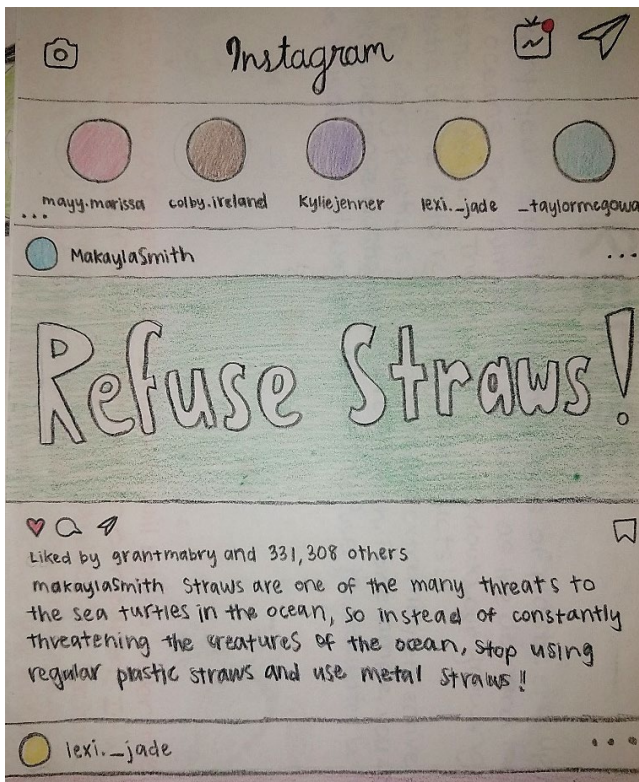 Instagram
mayy.marissa colby.ireland Kyliejenner lexi._jade _taylormcgowa
...
MakaylaSmith ...
Refuse Straws!
Liked by grantmabry and 331,308 others
makaylasmith Straws are one of the many threats to
the sea turtles in the ocean, so instead of constantly
threatening the creatures of the ocean, stop using
regular plastic straws and use metal straws!!
lexi._jade ...